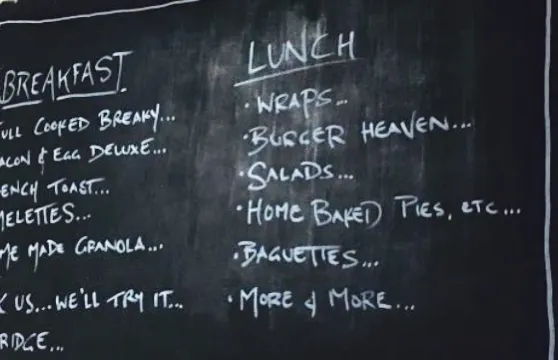 BREAKFAST
FULL COOKED BREAKY...
BACON & EGG DELUXE...
FRENCH TOAST...
OMELETTES...
HOME MADE GRANOLA...
US...WE'LL TRY IT...
LUNCH
• WRAPS...
• BURGER HEAVEN...
• SALADS...
• HOME BAKED PIES, ETC...
• BAGUETTES...
• MORE & MORE...